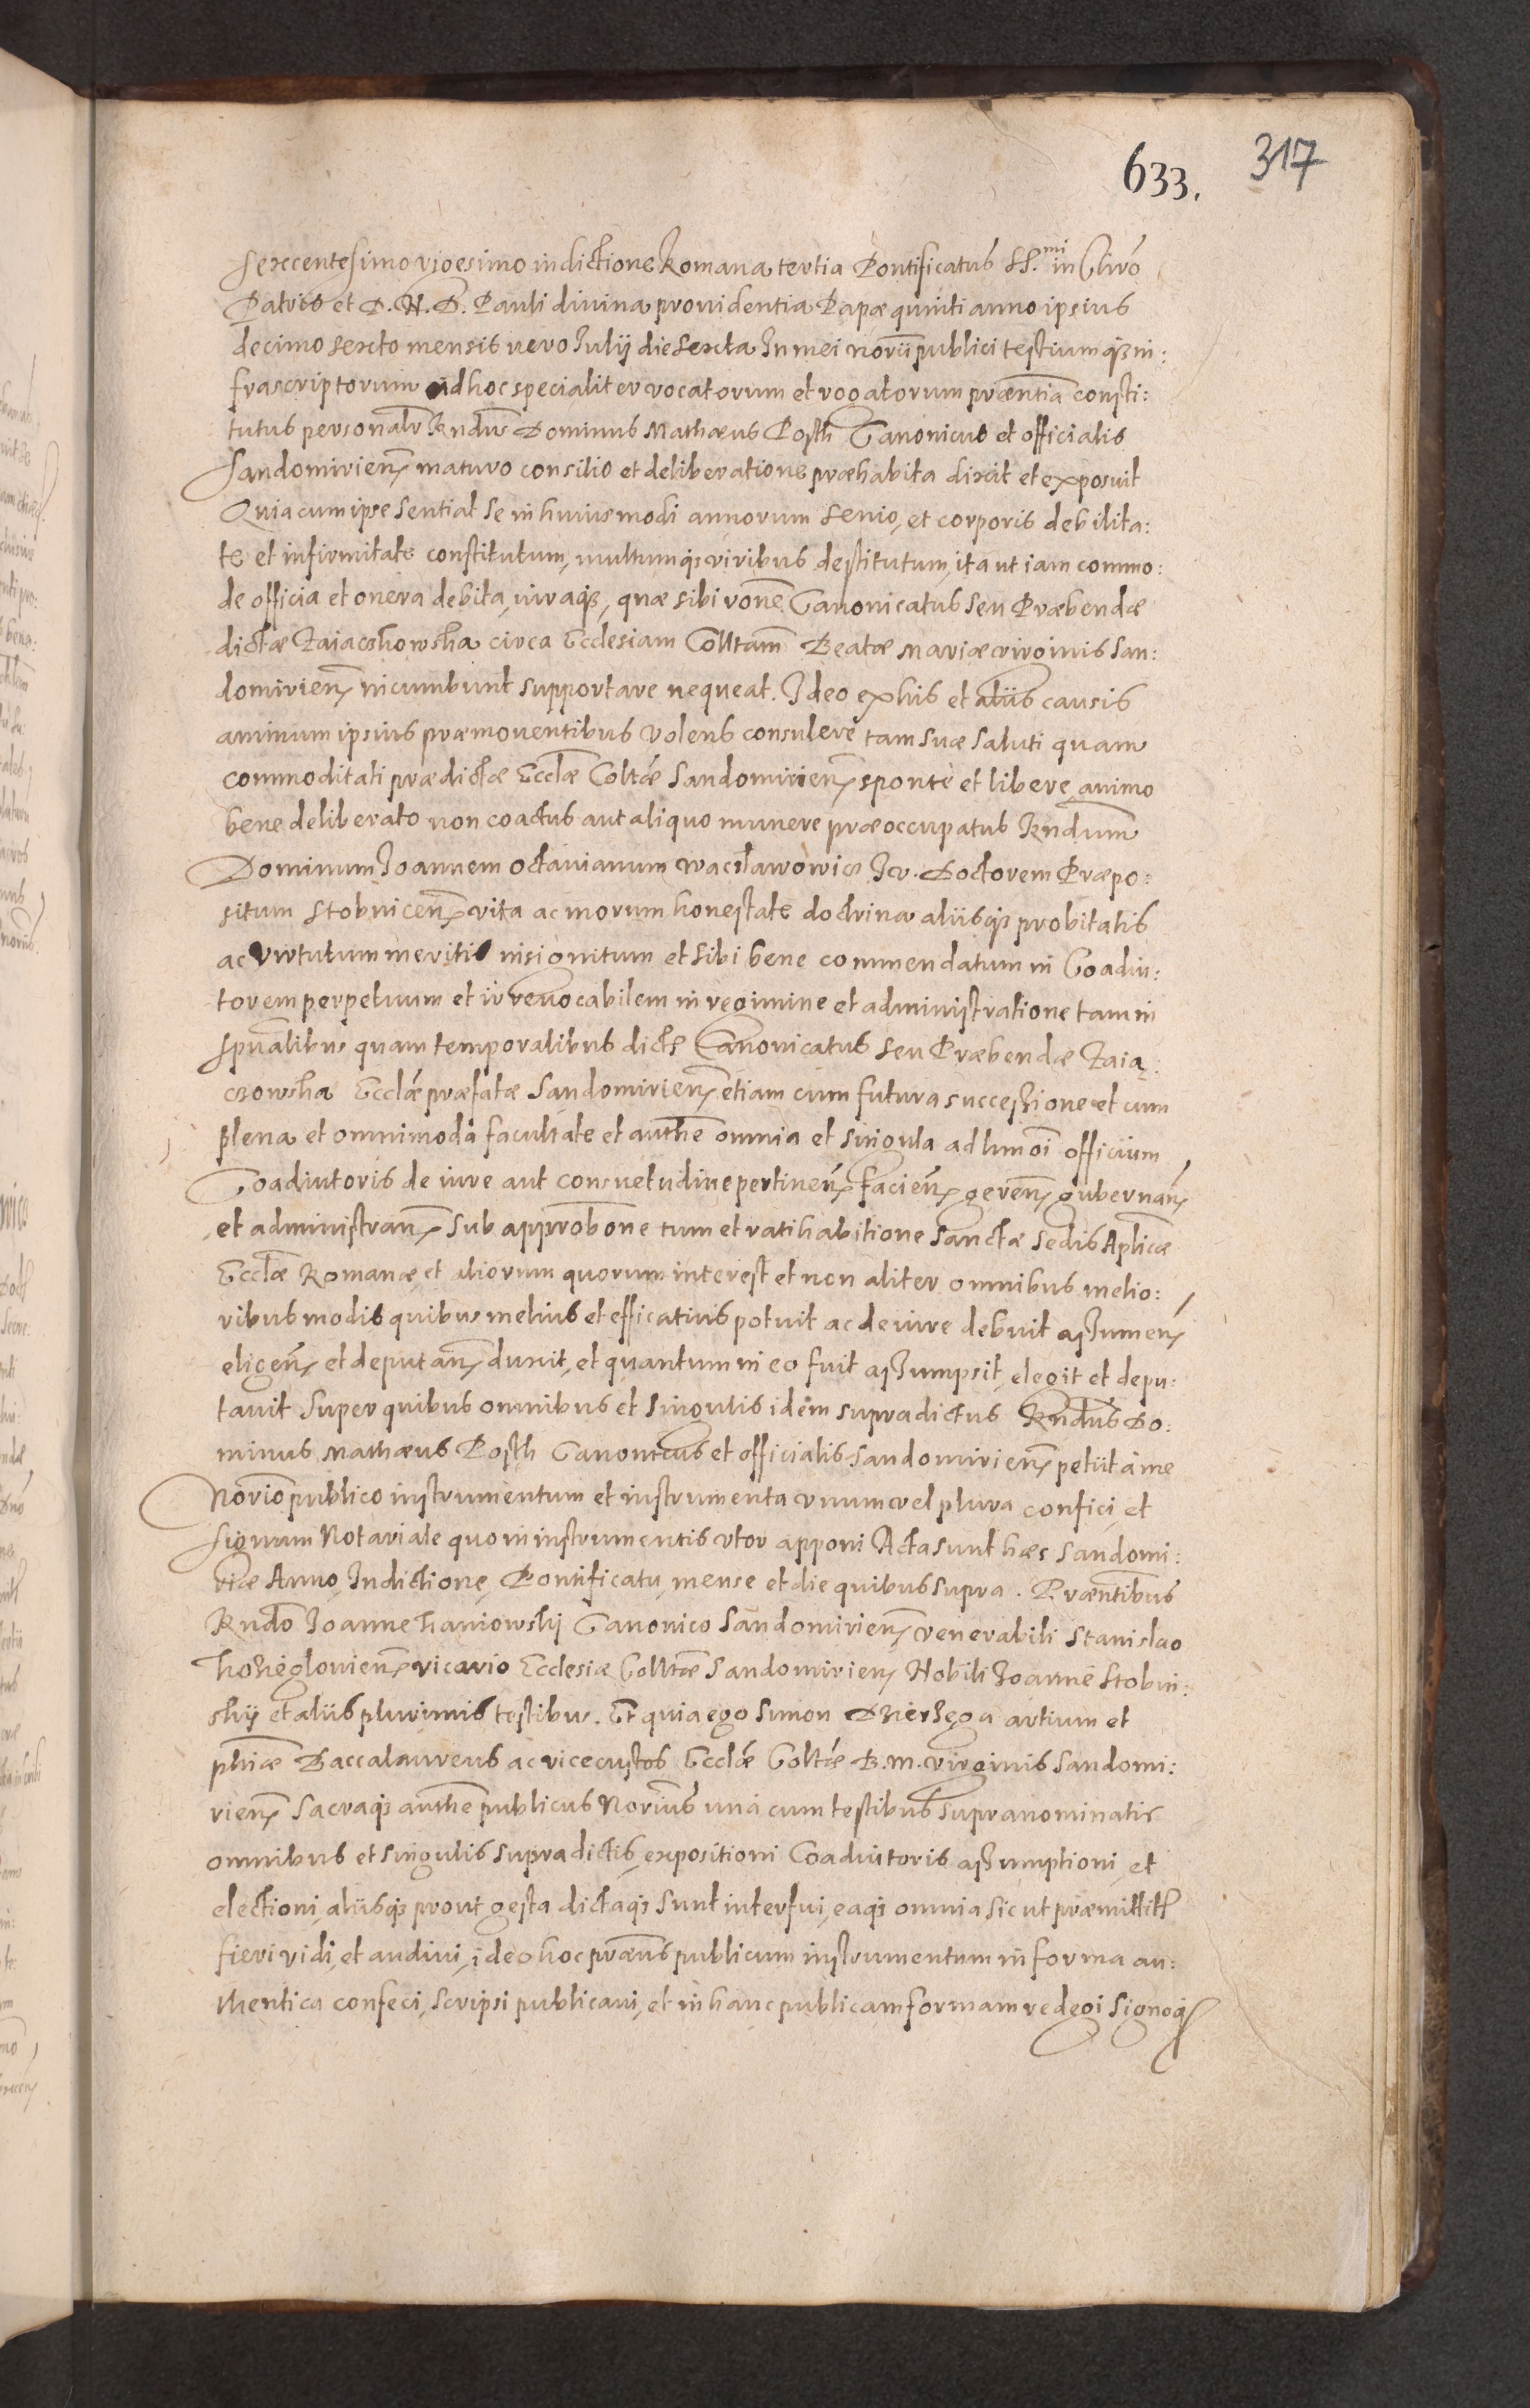 633. 317
sexcentesimo vigesimo indictione Romana tertia Pontificatus SS.mi in Chro
Patris et D. N. D. Pauli divina providentia Papæ quinti anno ipsius
decimo sexto mensis vero Iulij die sexta In mei norii publici testiumq3 in:
frascriptorum ad hoc specialiter vocatorum et rogatorum præntia consti:
tutus personalr Rndus Dominus Mathæus Posth Canonicus et officialis
Sandomirien maturo consilio et deliberatione præhabita dixit et exposuit
Quia cum ipse sentiat se in huiusmodi annorum senio, et corporis debilita:
te et infirmitate constitutum, multumq3 viribus destitutum, ita ut iam commo:
de officia et onera debita, iuraq3, quæ sibi rone Canonicatus seu Præbendæ
dictæ Zaiaczkowska circa Ecclesiam Colltam Beatæ Mariæ virginis San:
domirien incumbunt supportare nequeat. Ideo ex his et aliis causis
animum ipsius præmoventibus volens consulere tam suæ saluti quam
commoditati prædictæ Ecclæ Coltæ Sandomirien sponte et libere, animo
bene deliberato non coactus aut aliquo munere præoccupatus Rndum
Dominum Joannem Octavianum Waczlawowicz Iv. Doctorem Præpo:
situm Stobnicen vita ac morum honestate doctrina aliisq3 probitatis
ac virtutum meritis insignitum et sibi bene commendatum in Coadiu:
torem perpetuum et irrevocabilem in regimine et administratione tam in
spualibus quam temporalibus dicti Canonicatus seu Præbendæ Zaia:
czowska Ecclæ præfatæ Sandomirien etiam cum futura successione et cum
plena et omnimoda facultate et authe omnia et singula ad hmoi officium
Coadiutoris de iure aut consuetudine pertinen facien geren gubernan
et administran sub approbone tum et ratihabitione Sanctæ Sedis Aplicæ
Ecclæ Romanæ et aliorum quorum interest et non aliter omnibus melio:
ribus modis quibus melius et efficatius potuit ac de iure debuit assumen
eligen et deputan duxit, et quantum in eo fuit assumpsit, elegit et depu:
tavit Super quibus omnibus et singulis idem supradictus Rndus Do:
minus Mathæus Posth Canonicus et officialis Sandomirien petiit à me
Norio publico instrumentum et instrumenta unum vel plura confici, et
signum Notariale quo in instrumentis utor apponi Acta sunt hæc Sandomi:
riæ Anno, Indictione, Pontificatu, mense et die quibus supra. Præntibus
Rndo Joanne Chaniowskj Canonico Sandomirien venerabili Stanislao
Kozieglovien vicario Ecclesiæ Colltæ Sandomirien Nobili Joanne Stobni:
skij et aliis plurimis testibus. Et quia ego Simon Dzierzega artium et
phiæ Baccalaureus ac vicecustos Ecclæ Coltæ B. M. virginis Sandomi:
rien Sacraq3 authe publicus Norius unà cum testibus supranominatis
omnibus et singulis supradictis, expositioni Coadiutoris assumptioni, et
electioni, aliisq3 prout gesta dictaq3 sunt interfui, eaq3 omnia sicut præmittitr
fieri vidi, et audivi, ideo hoc præns publicum instrumentum in forma au:
thentica confeci, scripsi publicavi, et in hanc publicam formam redegi signoq3